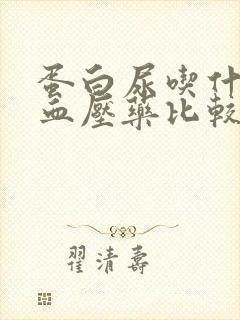 蛋白尿喫什
血壓藥比較
翟清壽